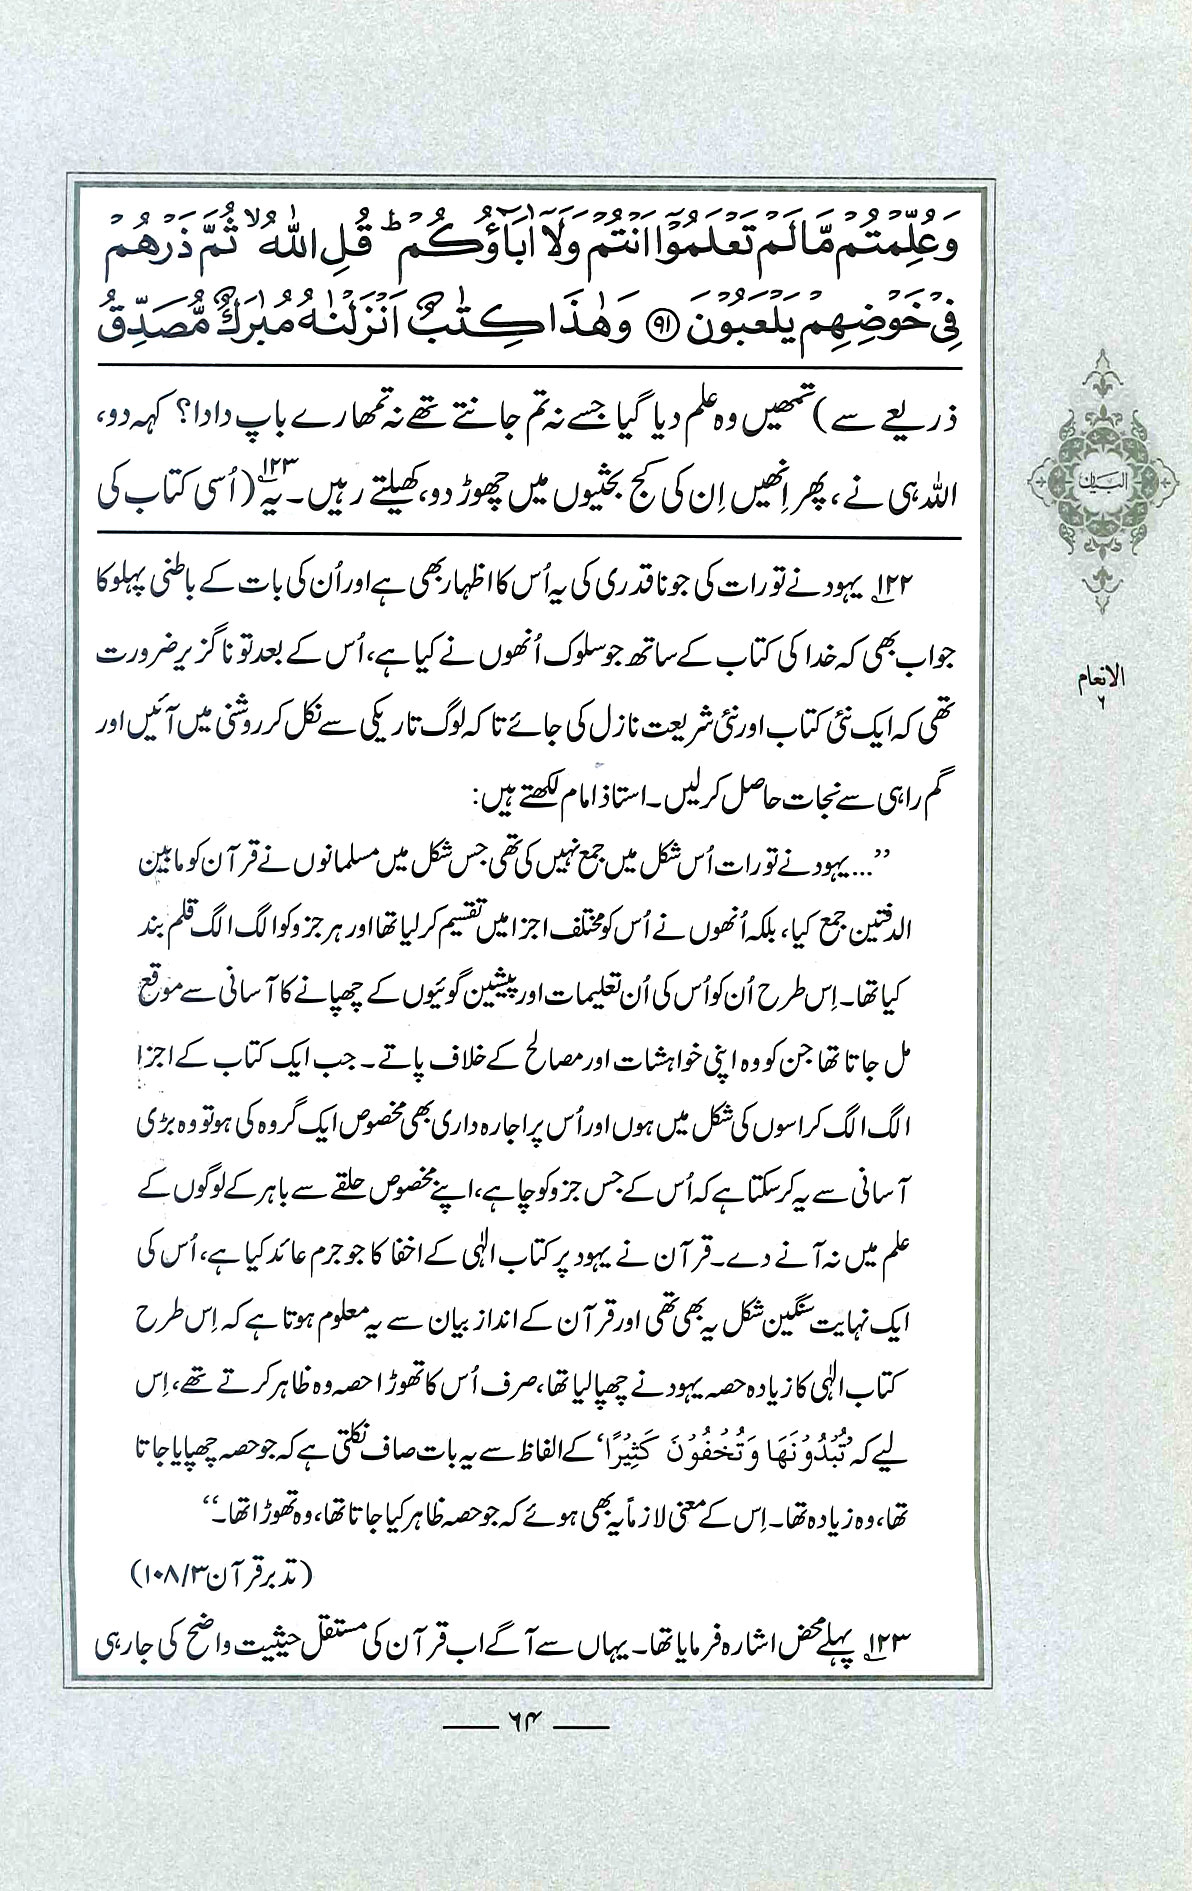 وَعُلِّمْتُمْ مَّا لَمْ تَعْلَمُوْٓا اَنْتُمْ وَلَآ اٰبَآؤُكُمْ ؕ قُلِ اللّٰهُ ۙ ثُمَّ ذَرْهُمْ
فِيْ خَوْضِهِمْ يَلْعَبُوْنَ ﴿۹۱﴾ وَهٰذَا كِتٰبٌ اَنْزَلْنٰهُ مُبٰرَكٌ مُّصَدِّقُ
ذریعے سے) تمھیں وہ علم دیا گیا جسے نہ تم جانتے تھے نہ تمھارے باپ دادا؟ کہہ دو،
اللہ ہی نے، پھر اِنھیں اِن کی کج بحثیوں میں چھوڑ دو، کھیلتے رہیں۔ ۱۲۳ یہ (اُسی کتاب کی
۱۲۲ یہود نے تورات کی جو ناقدری کی یہ اُس کا اظہار بھی ہے اور اُن کی بات کے باطنی پہلو کا
جواب بھی کہ خدا کی کتاب کے ساتھ جو سلوک اُنھوں نے کیا ہے، اُس کے بعد تو ناگزیر ضرورت
تھی کہ ایک نئی کتاب اور نئی شریعت نازل کی جائے تاکہ لوگ تاریکی سے نکل کر روشنی میں آئیں اور
گم راہی سے نجات حاصل کرلیں۔ استاذ امام لکھتے ہیں:
’’...یہود نے تورات اُس شکل میں جمع نہیں کی تھی جس شکل میں مسلمانوں نے قرآن کو مابین
الدفتین جمع کیا، بلکہ اُنھوں نے اُس کو مختلف اجزا میں تقسیم کرلیا تھا اور ہر جزو کو الگ الگ قلم بند
کیا تھا۔ اِس طرح اُن کو اُس کی اُن تعلیمات اور پیشین گوئیوں کے چھپانے کا آسانی سے موقع
مل جاتا تھا جن کو وہ اپنی خواہشات اور مصالح کے خلاف پاتے۔ جب ایک کتاب کے اجزا
الگ الگ کراسوں کی شکل میں ہوں اور اُس پر اجارہ داری بھی مخصوص ایک گروہ کی ہو تو وہ بڑی
آسانی سے یہ کرسکتا ہے کہ اُس کے جس جزو کو چاہے، اپنے مخصوص حلقے سے باہر کے لوگوں کے
علم میں نہ آنے دے۔ قرآن نے یہود پر کتاب الٰہی کے اخفا کا جو جرم عائد کیا ہے، اُس کی
ایک نہایت سنگین شکل یہ بھی تھی اور قرآن کے انداز بیان سے یہ معلوم ہوتا ہے کہ اِس طرح
کتاب الٰہی کا زیادہ حصہ یہود نے چھپا لیا تھا، صرف اُس کا تھوڑا حصہ وہ ظاہر کرتے تھے، اِس
لیے کہ ’تُبْدُوْنَهَا وَتُخْفُوْنَ كَثِيْرًا‘ کے الفاظ سے یہ بات صاف نکلتی ہے کہ جو حصہ چھپایا جاتا
تھا، وہ زیادہ تھا۔ اِس کے معنی لازماً یہ بھی ہوئے کہ جو حصہ ظاہر کیا جاتا تھا، وہ تھوڑا تھا۔‘‘
(تدبر قرآن ۳/۱۰۸)
۱۲۳ پہلے محض اشارہ فرمایا تھا۔ یہاں سے آگے اب قرآن کی مستقل حیثیت واضح کی جارہی
البیان
الانعام
۶
۶۴